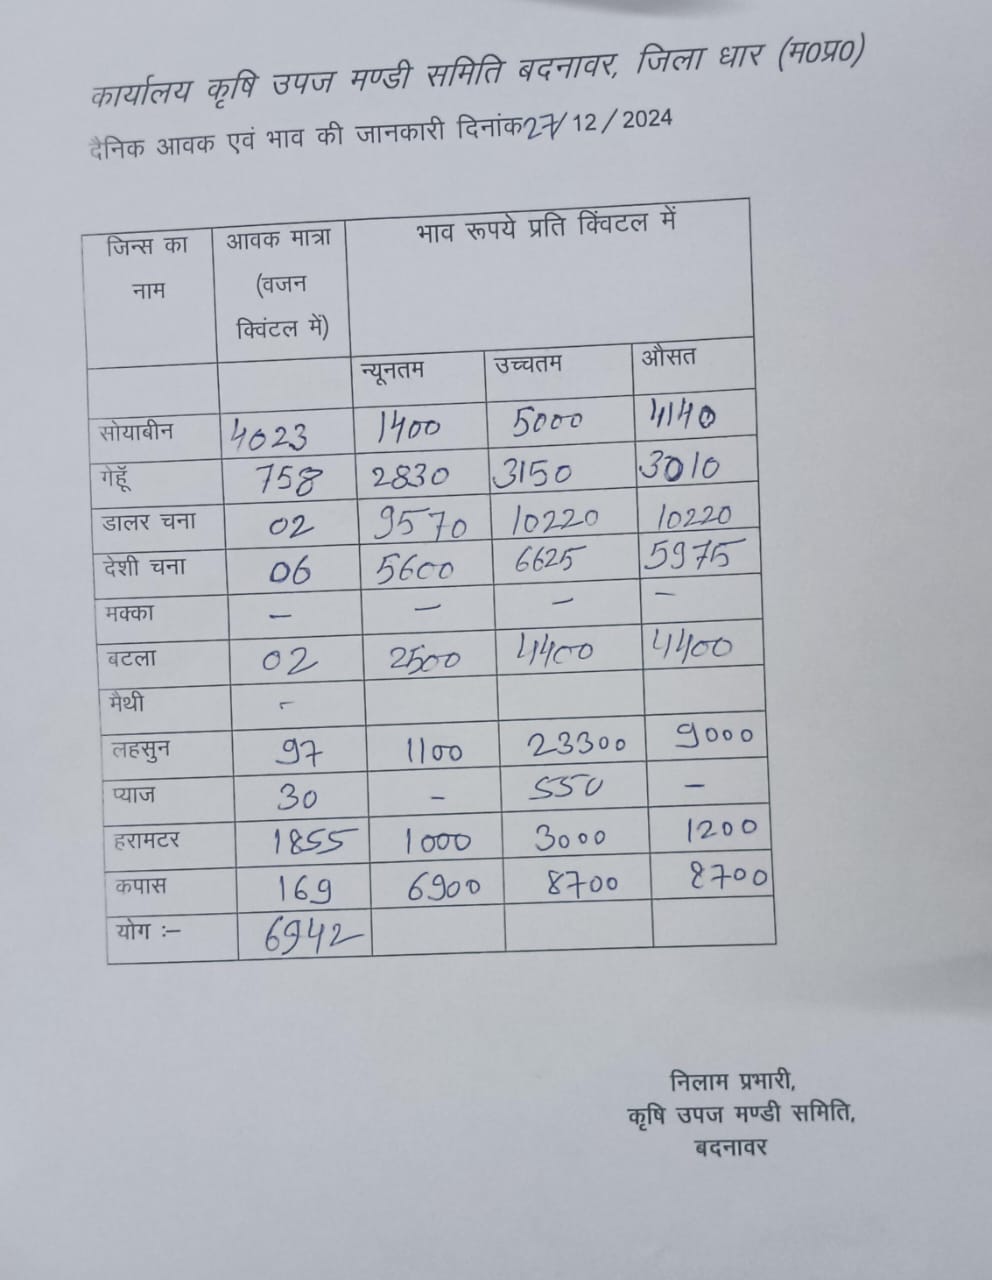 कार्यालय कृषि उपज मण्डी समिति बदनावर, जिला धार (म0प्र0)
दैनिक आवक एवं भाव की जानकारी दिनांक 27/12/2024
जिन्स का नाम आवक मात्रा (वजन क्विंटल में) भाव रूपये प्रति क्विंटल में
न्यूनतम उच्चतम औसत
सोयाबीन 4023 1400 5000 4140
गेहूँ 758 2830 3150 3010
डालर चना 02 9570 10220 10220
देशी चना 06 5600 6625 5975
मक्का – – – –
बटला 02 2500 4400 4400
मैथी -
लहसुन 97 1100 23300 9000
प्याज 30 – 550 –
हरामटर 1855 1000 3000 1200
कपास 169 6900 8700 8700
योग :– 6942
निलाम प्रभारी,
कृषि उपज मण्डी समिति,
बदनावर